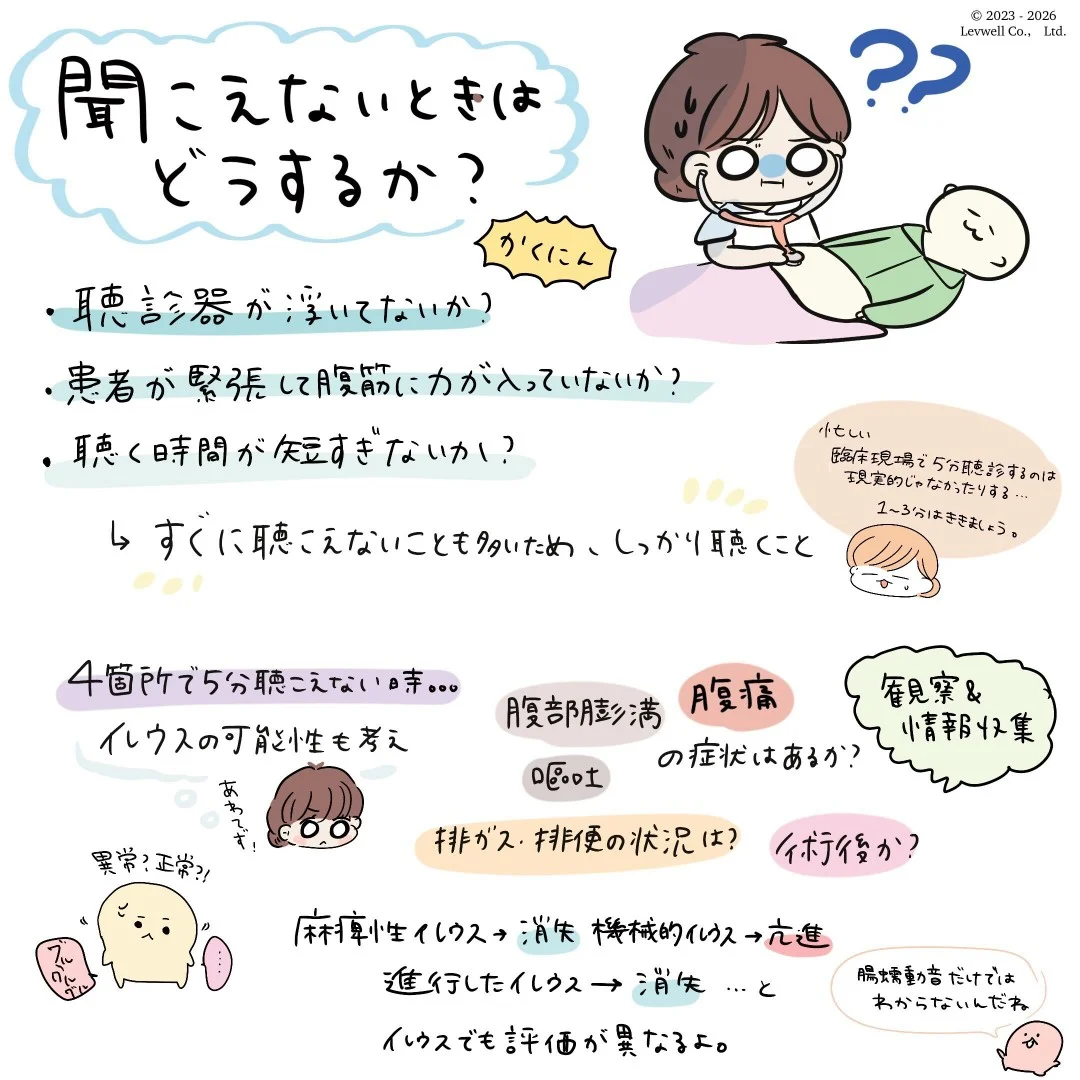 © 2023 - 2026
Levwell Co., Ltd.
聞こえないときは
どうするか?
かくにん
・聴診器が浮いてないか?
・患者が緊張して腹筋に力が入っていないか?
・聴く時間が短すぎないかし?
忙しい
臨床現場で5分聴診するのは
現実的じゃなかったりする…
1〜3分はききましょう。
↳ すぐに聴こえないことも多いため、しっかり聴くこと
4箇所で5分聴こえない時…
イレウスの可能性も考え
あわてず!
腹部膨満
腹痛
嘔吐
の症状はあるか?
観察&
情報収集
排ガス・排便の状況は?
術後か?
異常?正常?!
グル
グル
グル
....
麻痺性イレウス→消失 機械的イレウス→亢進
進行したイレウス→消失 …と
イレウスでも評価が異なるよ。
腸蠕動音だけでは
わからないんだね